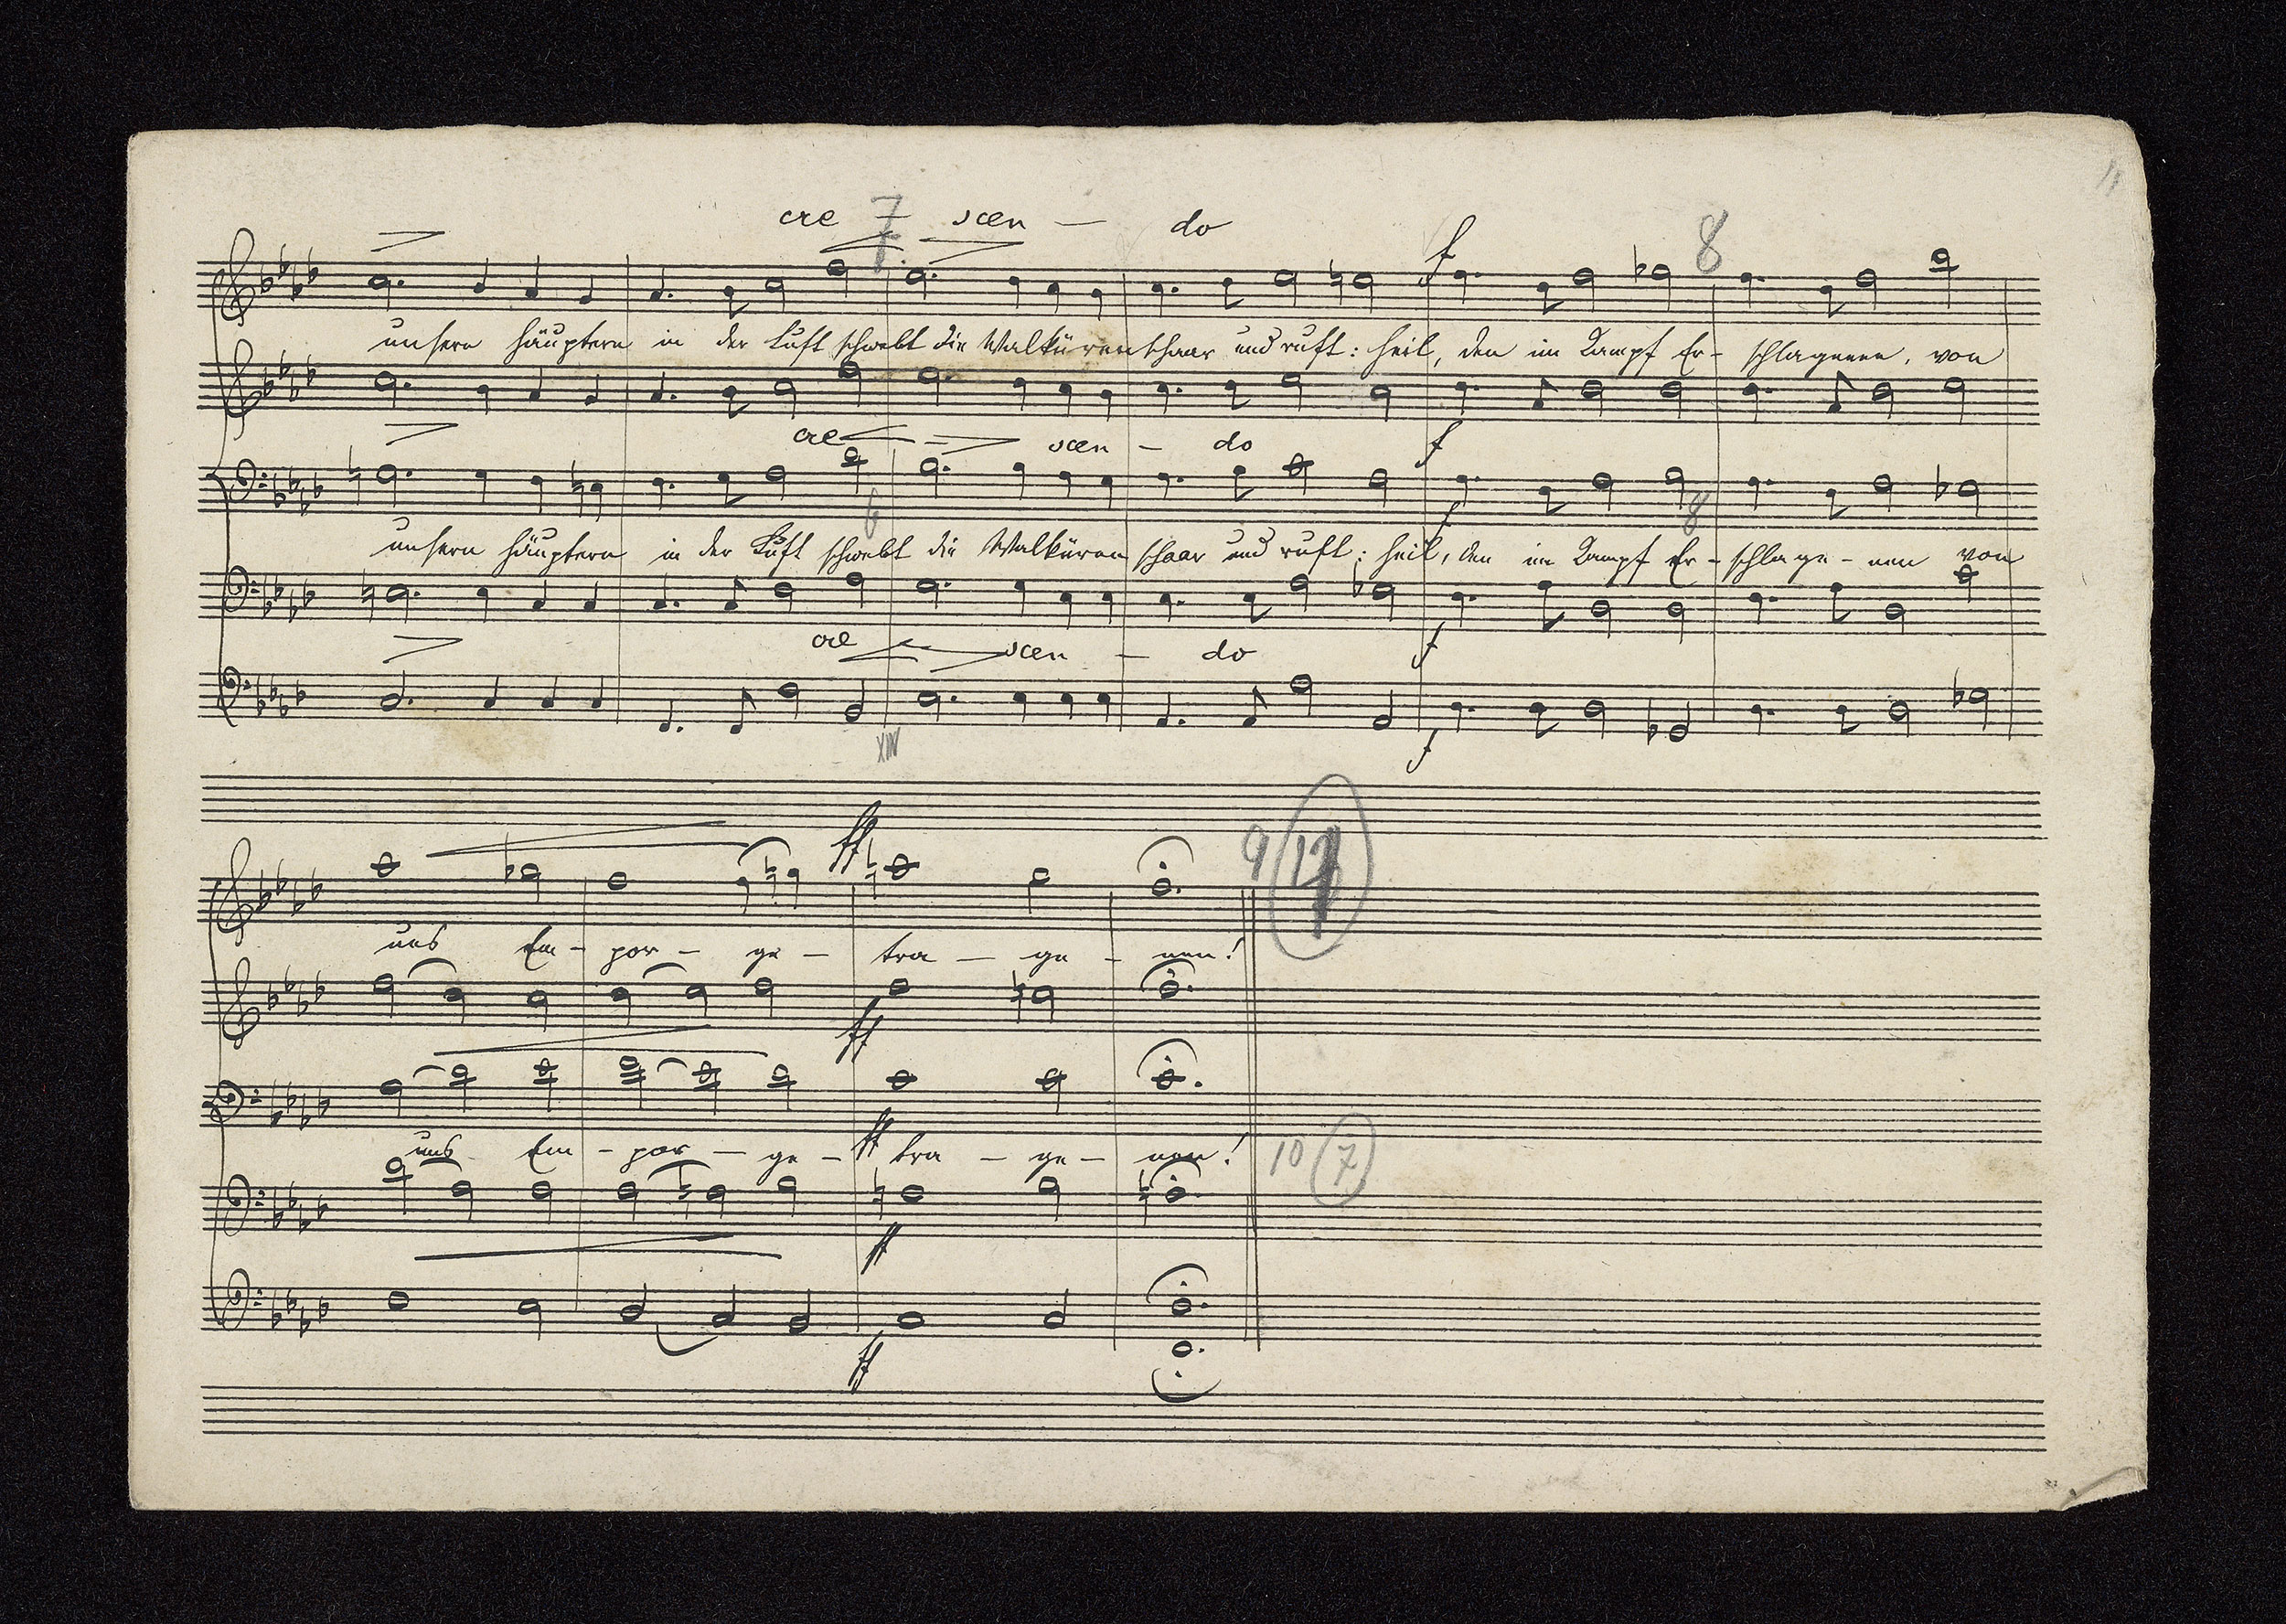 11
cre 7 scen — do 8
f
unsern häuptern in der Luft schwebt die Walkürenschaar und ruft: Heil, den im Kampf Er- schlagenen, von
cre scen — do f
6 f 8
unsern häuptern in der Luft schwebt die Walküren schaar und ruft: Heil, den im Kampf Er- schlage-nen von
cre scen — do f
XIV f
ff 9
uns Em- por- ge- tra- ge- nen!
ff
ff
uns Em- por- ge- tra- ge- nen! 10 7
ff
ff